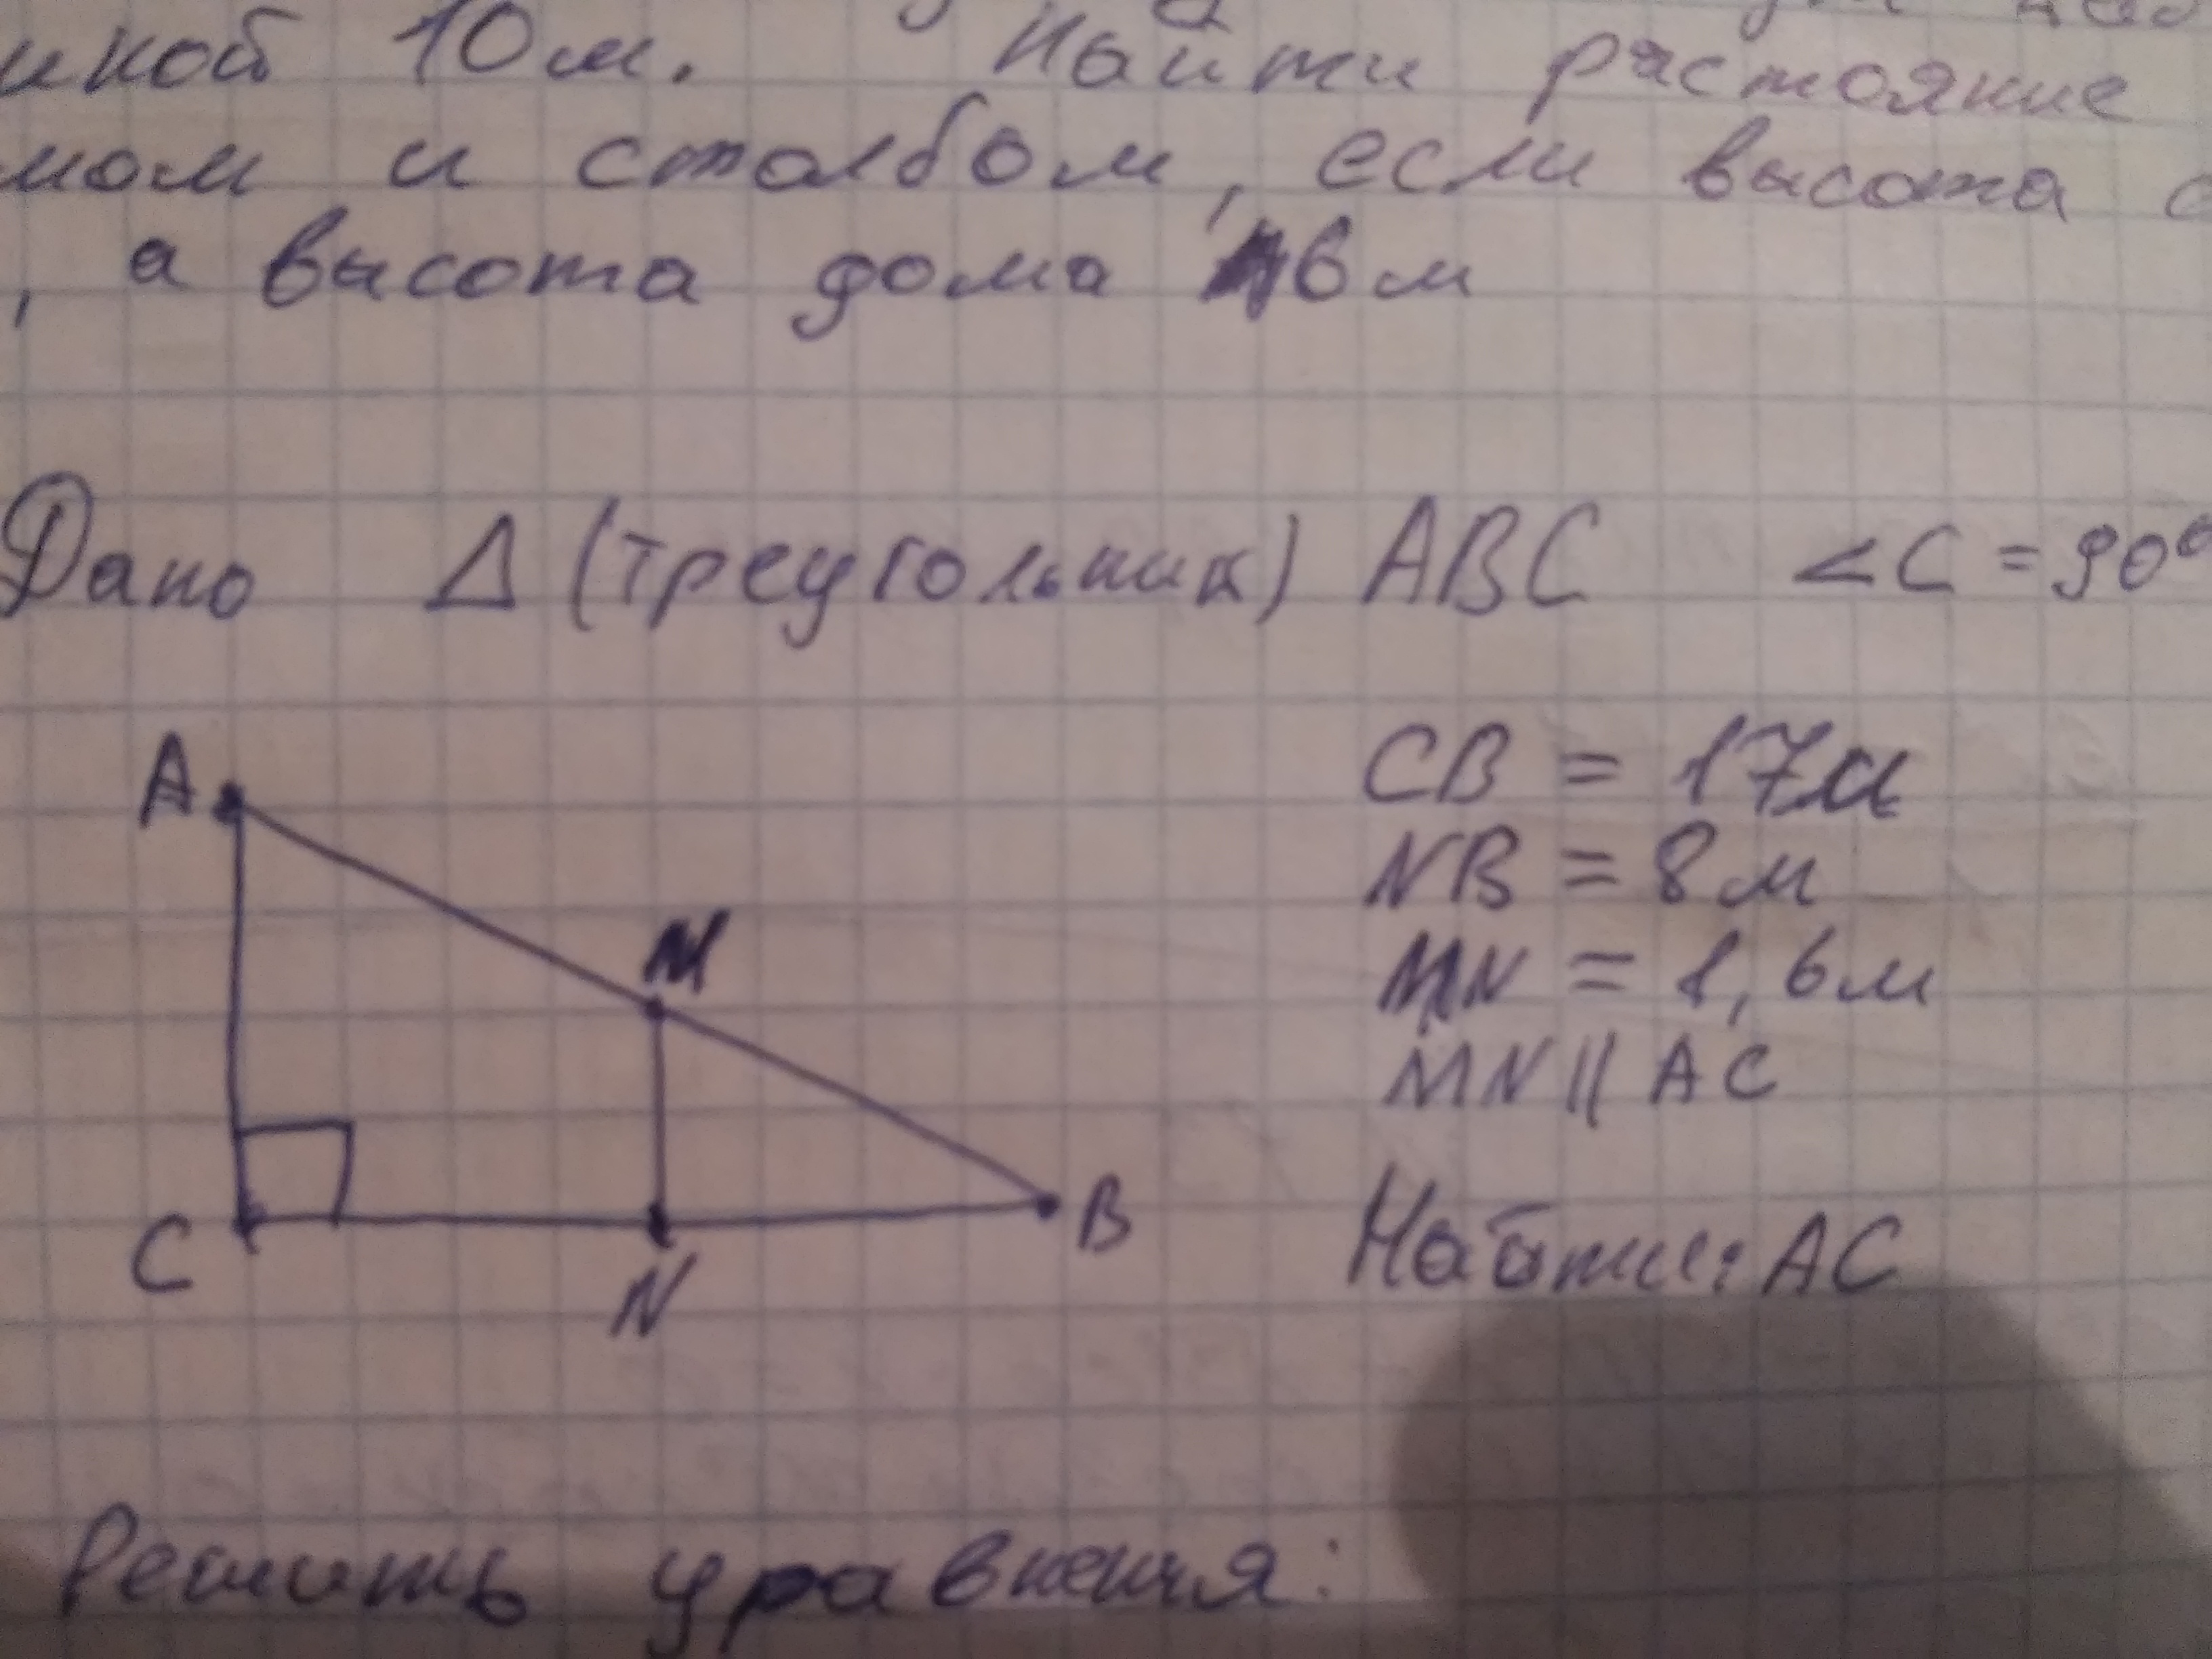 10м. Найти растояние
и столбом, если высота
, а высота дома 6м
Дано Δ (треугольник) ABC ∠C = 90°
CB = 17м
NB = 8м
MN = 1,6м
MN || AC
Найти: AC
A
M
C
N
B
Решить уравнения: